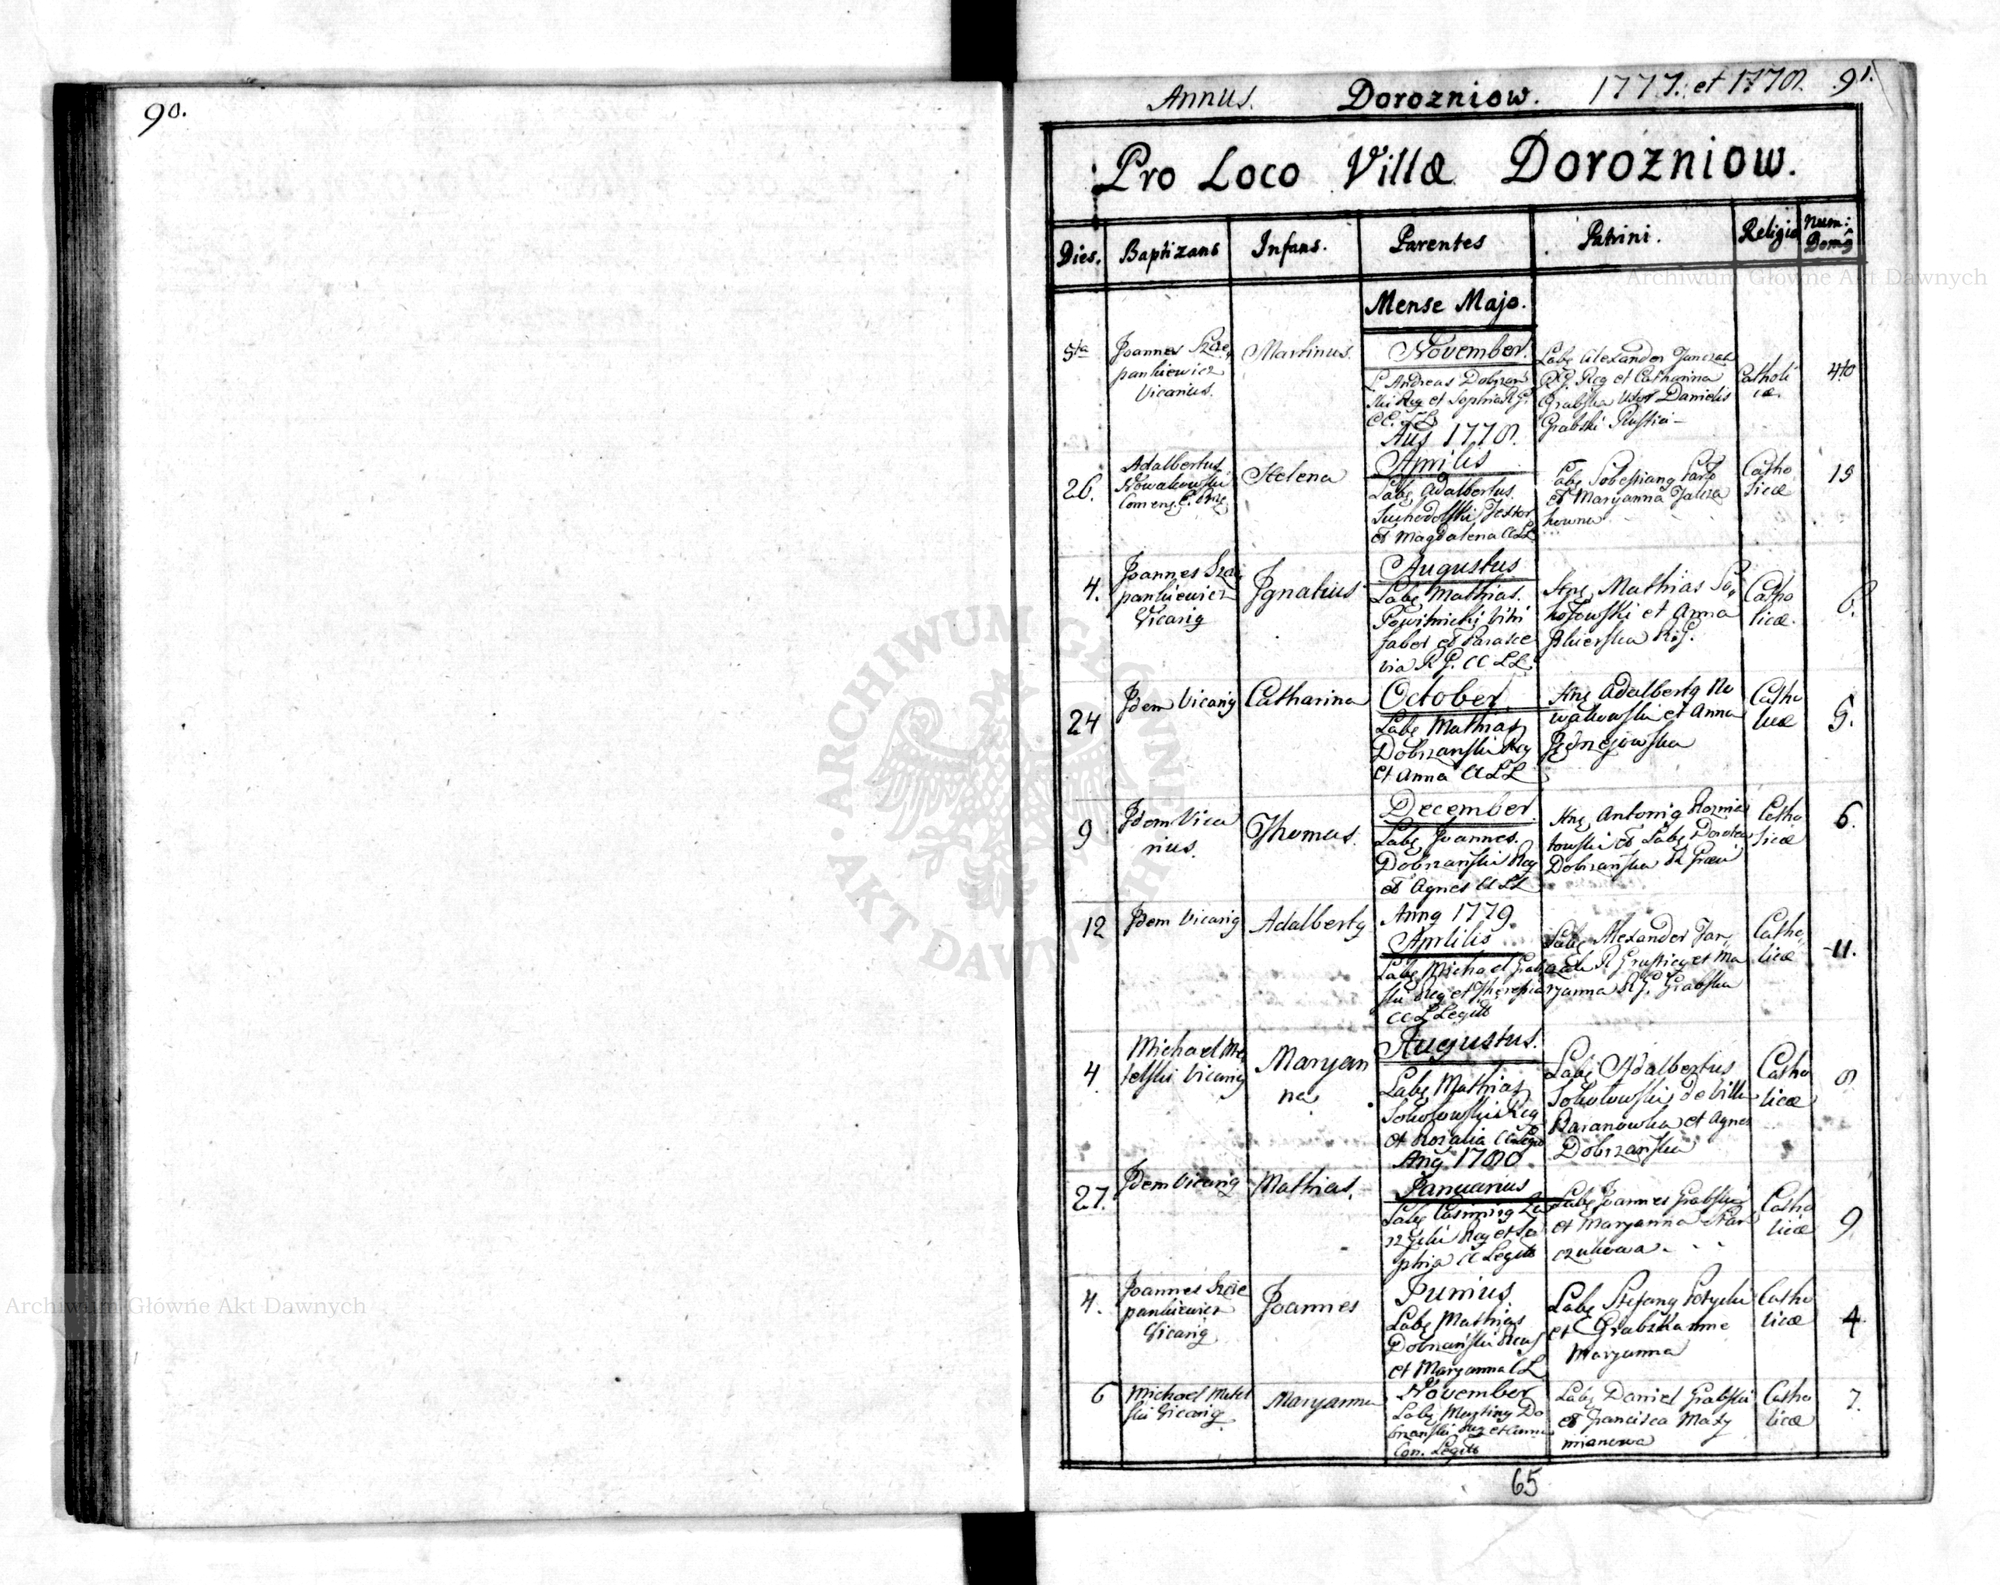 90.
Annus. Dorozniow. 1777. et 1778. 91.
Pro Loco Villæ Dorozniow.
Dies. Baptizans Infans. Parentes Patrini. Religio Num: Domq
Mense Majo.
5ta
Joannes Szcze
pankiewicz
Vicarius.
Martinus.
November.
L. Andreas Dobrzan
ski Rcq et Sophia R.G.
CC. LL
Labq Alexander Janczak
R.G. Rcq et Catharina
Grabska Uxor Danielis
Grabski Rustici
Catholi
cæ
4to
Aus 1778.
26.
Adalbertus
Nowakowski
Helena
Aprilis
Labq Adalbertus
Suchodolski Textor
et Magdalena CCLL
Labq Sobestianq
et Maryanna
kowna
Catho
licæ
15
4.
Joannes Szcze
pankiewicz
Vicariq
Ignatius
Augustus
Labq Mathias
faber et Parasce
via R G. CC LL
Gnq Mathias So
kołowski et Anna
R.G.
Catho
licæ.
6.
24
Idem Vicariq
Catharina
October.
Labq Mathiaq
Dobrzanski Rcq
et Anna CCLL
Gnq Adalbertq No
wakowski et Anna
Catho
licæ
5.
9
Idem Vica
rius.
Thomas.
December.
Labq Joannes.
Dobrzański Rcq
et Agnes CCLL
Gnq Antoniq Rozmia
towski et Labq Dorotea
Dobrzańska R Græci
Catho
licæ
6.
12
Idem Vicariq
Adalbertq
Annq 1779.
Aprilis
Labq Michael Grab
ski Rcq et Theresia
CCLLegit
Labq Alexander Jan
czak R Grustieq et Ma
ryanna R.G. Grabska
Catho
licæ
11.
4.
Michael Ma
telski Vicariq
Maryan
na
Augustus.
Labq Mathiaq
Sokołowski Rcq
et Rozalia CCLegit
Labq Adalbertus
Sokołowski de Villa
Baranowka et Agnes
Dobrzańska
Catho
licæ
8
Anq 1780.
27.
Idem Vicariq
Mathias.
Januarius
Labq Casimirq Za
rzycki Rcq et So
phia CC Legit
Labq Joannes Grabski
et Maryanna Fran
czukowa
Catho
licæ
9.
4.
Joannes Szcze
pankiewicz
Vicariq
Joannes
Junius
Labq Mathias
Dobrzański Rcq
et Maryanna CL
Labq Stefanq
et Grabskanne
Maryanna
Catho
licæ
4
6
Michael Matel
ski Vicariq
Maryanna
November
Labq Martinq Do
brzański Rcq et Anna
Con. Legit
Labq Daniel Grabski
et Francisca Maxy
mianowa
Catho
licæ
7.
65
ARCHIWUM GŁÓWNE AKT DAWNYCH
Archiwum Główne Akt Dawnych
Archiwum Główne Akt Dawnych